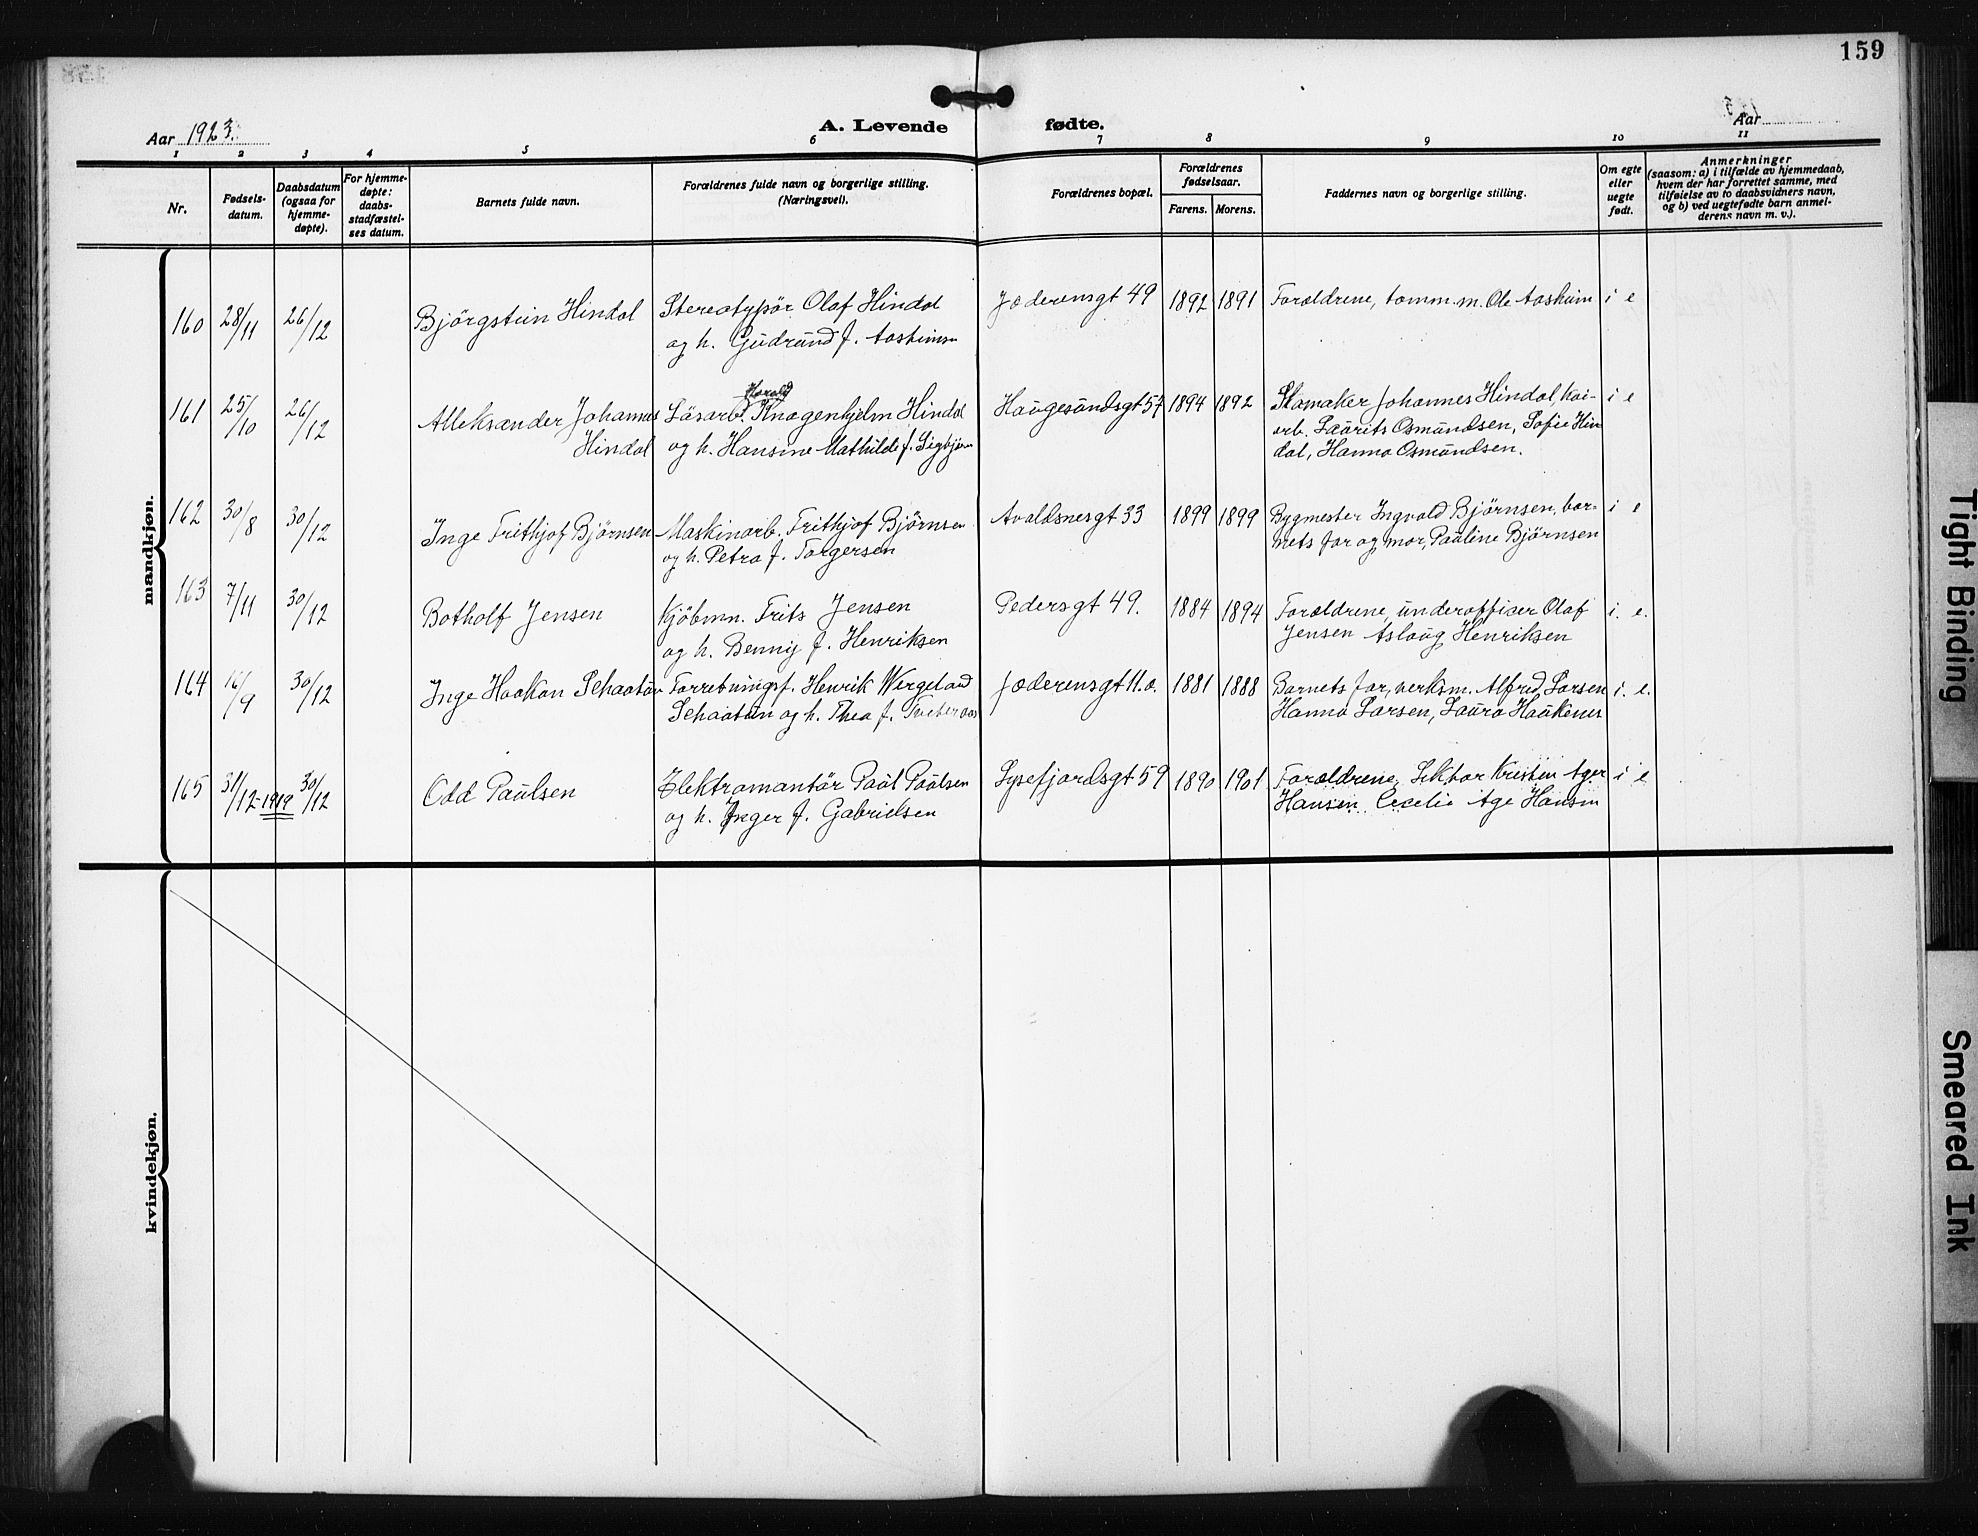 159
Aar 1923.
A. Levende fødte.
Aar
1 2 3 4 5 6 7 8 9 10 11
Nr.
Fødsels-
datum.
Daabsdatum
(ogsaa for
hjemme-
døpte).
For hjemme-
døpte:
daabs-
stadfæstel-
ses datum.
Barnets fulde navn.
Forældrenes fulde navn og borgerlige stilling.
(Næringsvei).
Forældrenes bopæl.
Forældrenes
fødselsaar.
Farens. Morens.
Faddernes navn og borgerlige stilling.
Om egte
eller
uegte
født.
Anmerkninger
(saasom: a) i tilfælde av hjemmedaab,
hvem der har forrettet samme, med
tilføielse av to daabsvidners navn,
og b) ved uegtefødte barn anmel-
derens navn m. v.).
mandkjøn.
160 28/11 26/12 Bjørgstein Hindal Stereotypør Olaf Hindal Jæderensgt 49 1892 1891 Forældrene, tømm.m. Ole Aasheim i e
og h. Gudrund f.
161 25/10 26/12 Alleksander Johannes Løsarb. Harald Knagenhjelm Hindal Haugesundsgt 57 1894 1892 Skomaker Johannes Hindal, kai- i e
Hindal og h. Hansine Mathilde f. arb. Laurits Osmundsen, Sofie Hin
dal, Hanna Osmundsen.
162 30/8 30/12 Inge Frithjof Bjørnsen Maskinarb. Frithjof Bjørnsen Avaldsnesgt 33 1899 1899 Bygmester Ingvald Bjørnsen, bar- i e
og h. Petra f. Torgersen nets far og mor, Pauline Bjørnsen
163 7/11 30/12 Botholf Jensen Kjøbmn. Frits Jensen Pedersgt 49. 1884 1894 Forældrene, underofficer Olaf i. e.
og h. Benny f. Henriksen Jensen Aslaug Henriksen
164 16/9 30/12 Inge Haakon Schaatun Forretningsf. Henrik Wergeland Jæderensgt 11.a. 1881 1888 Barnets far, verksm. Alfred Larsen i. e.
Schaatun og h. Thea f. Tveteraas Hanna Larsen, Laura Haukenes
165 31/12-1919 30/12 Odd Paulsen Elektromontør Paul Paulsen Lysefjordsgt 59 1890 1901 Forældrene, Lektor Kristen Ager i e
og h. Inger f. Gabrielsen Hansen Cecelie Age Hansen
kvindekjøn.
Tight Binding
Smeared Ink